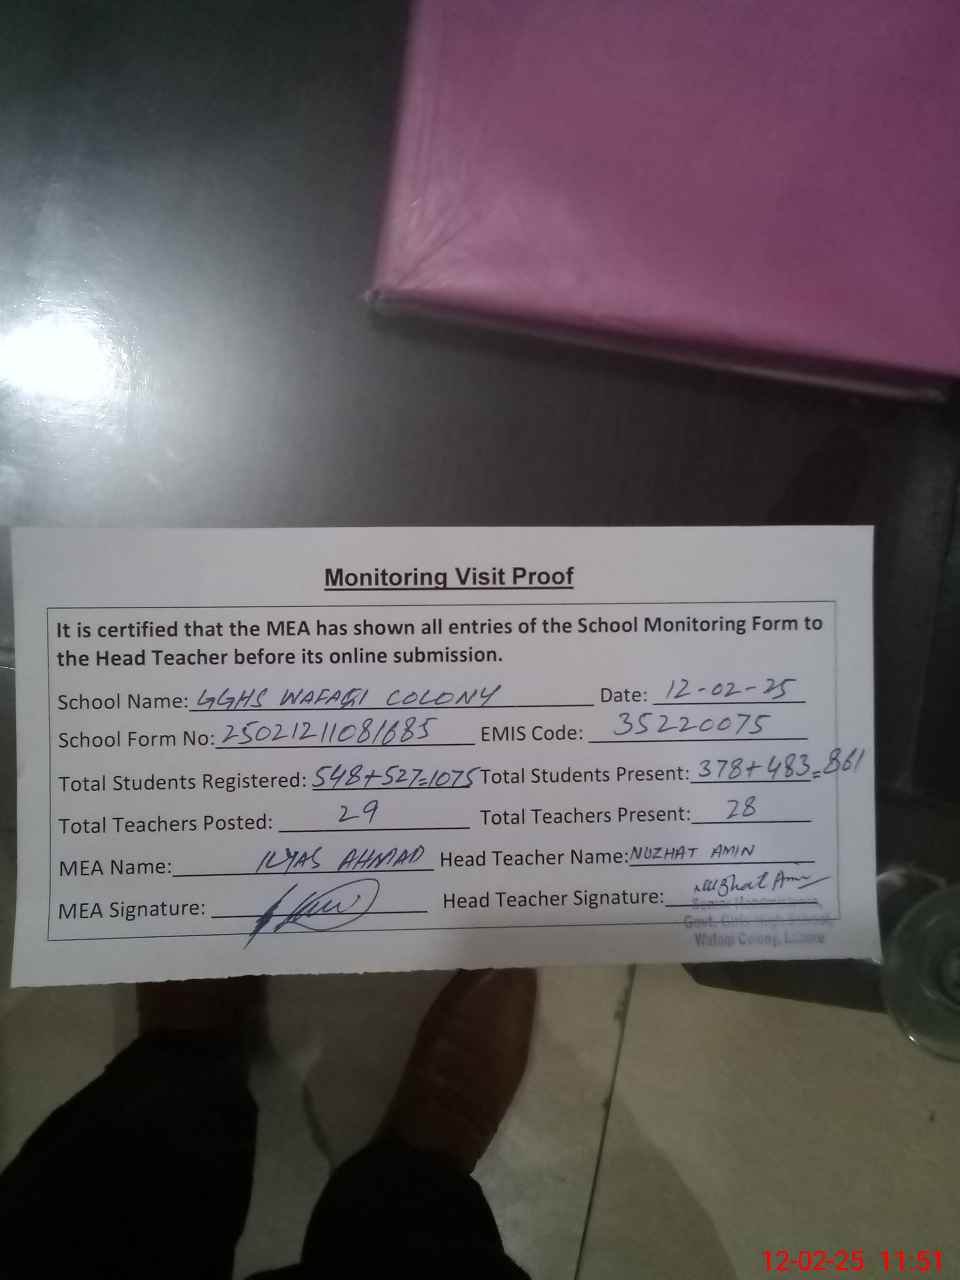 Monitoring Visit Proof
It is certified that the MEA has shown all entries of the School Monitoring Form to
the Head Teacher before its online submission.
School Name: GGHS WAFAQI COLONY Date: 12-02-25
School Form No: 25021211081685 EMIS Code: 35220075
Total Students Registered: 548+527=1075 Total Students Present: 378+483=861
Total Teachers Posted: 29 Total Teachers Present: 28
MEA Name: ILYAS AHMAD Head Teacher Name: NUZHAT AMIN
MEA Signature: Head Teacher Signature: Nuzhat Amin
Govt. Girls High School,
Wafaqi Colony, Lahore
12-02-25 11:51